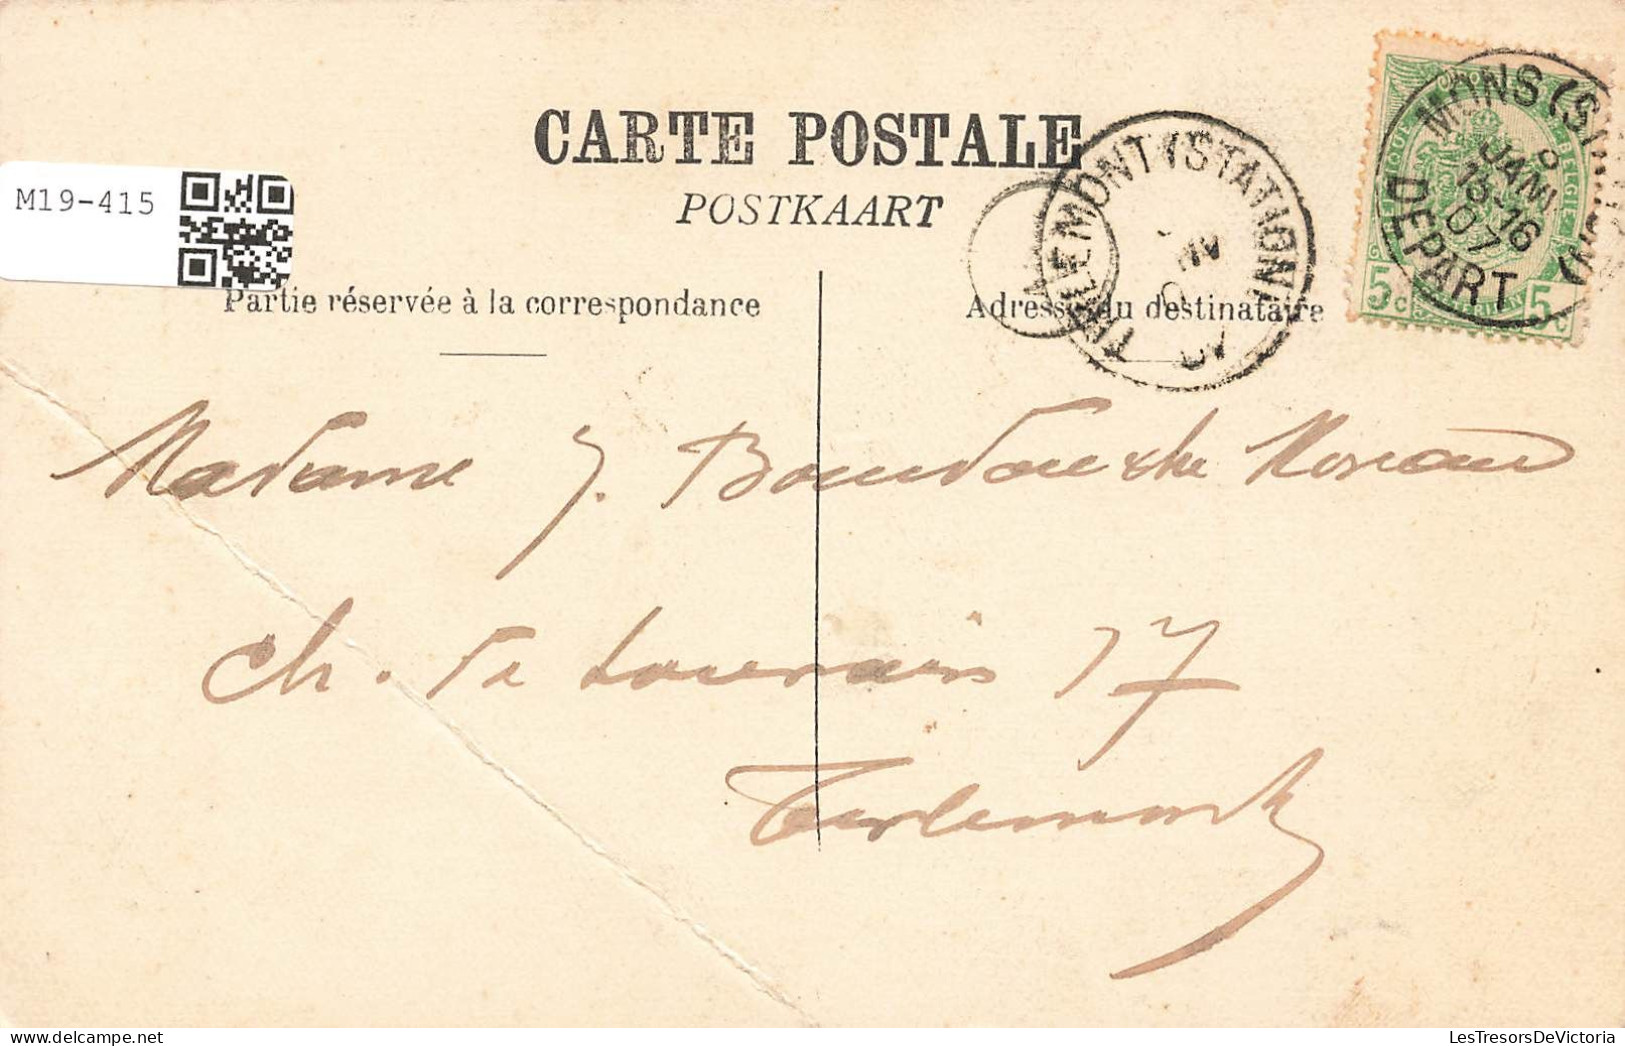 M19-415
CARTE POSTALE
POSTKAART
TIRLEMONT (STATION)
MONS (STATION)
9
JANV
15-16
07
DEPART
BELGIE
5c 5c
Partie réservée à la correspondance
Adresse du destinataire
Madame J. Moreau
Ch. de Louvain 17
Tirlemont
LesTresorsDeVictoria